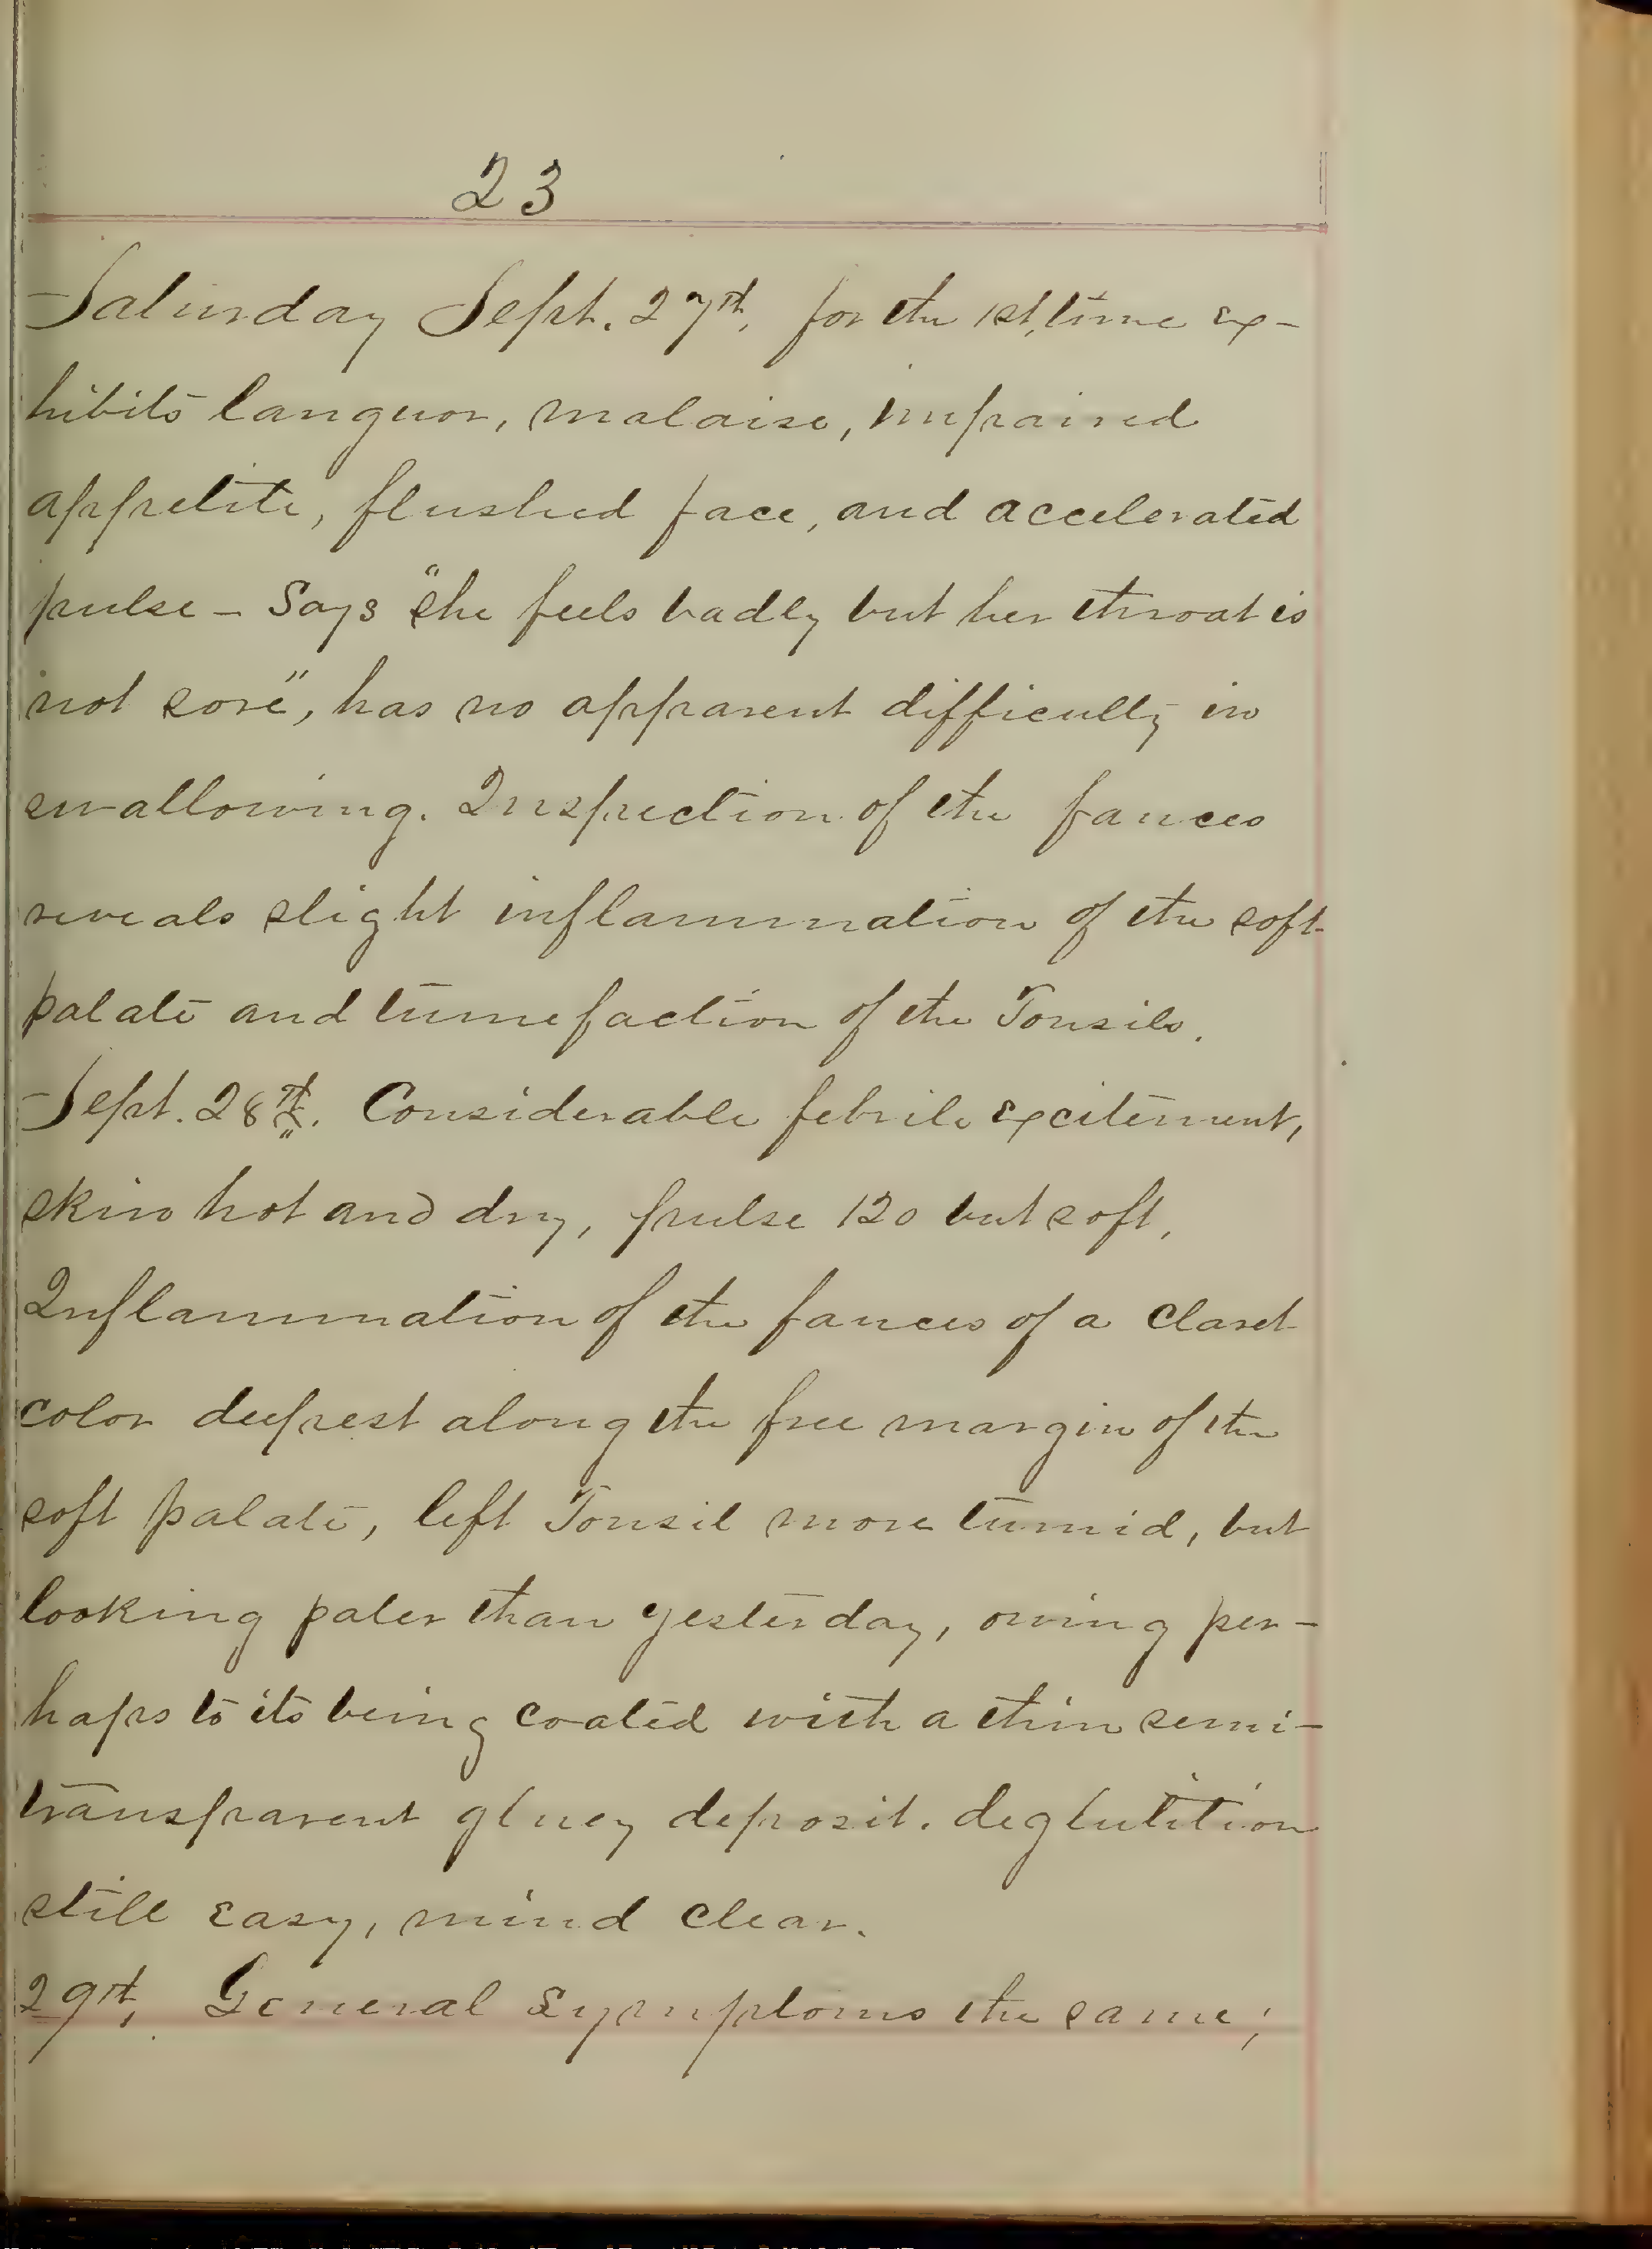 23
Saturday Sept. 27th, for the 1st, time ex-
hibits languor, malaise, impaired
appetite, flushed face, and accelerated
pulse - Says "she feels badly but her throat is
not sore", has no apparent difficulty in
swallowing. Inspection of the fauces
reveals slight inflammation of the soft
palate and tumefaction of the Tonsils.
Sept. 28th. Considerable febrile excitement,
skin hot and dry, pulse 120 but soft,
Inflammation of the fauces of a claret
color deepest along the free margin of the
soft palate, left Tonsil more tumid, but
looking paler than yesterday, owing per-
haps to its being coated with a thin semi-
transparent gluey deposit. deglutition
still easy, mind clear.
29th, General Symptoms the same;